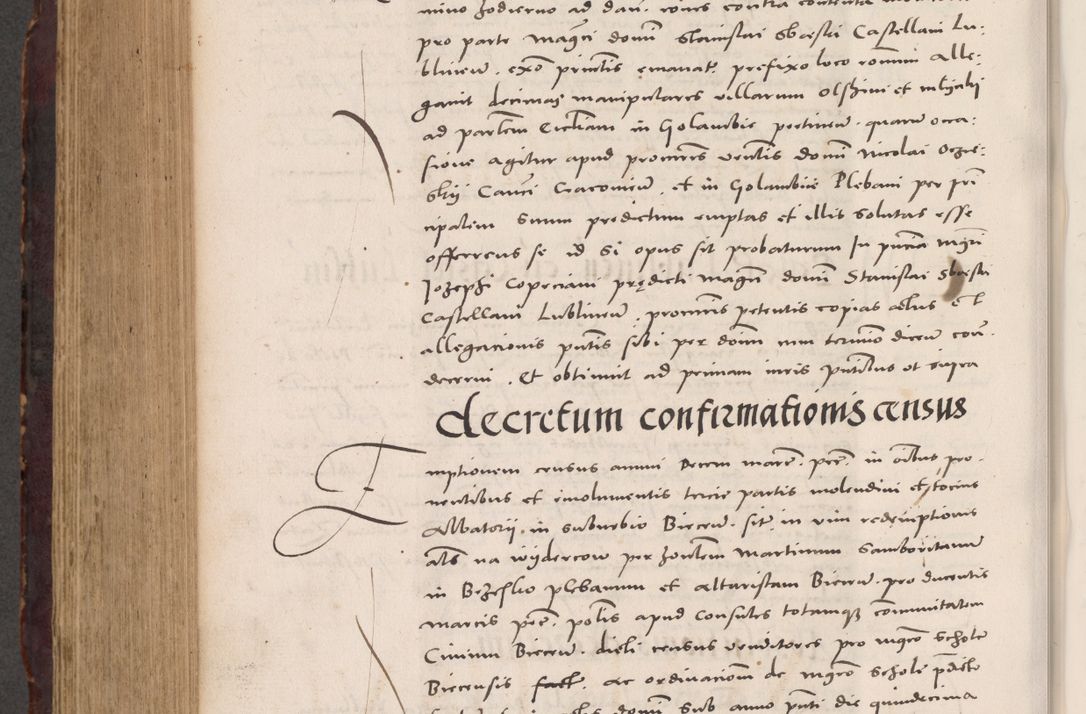 mino hodierno ad dan. contra contenta
pro parte Mag͞ci domi͞ Stanislai Sbąski Castellani Lu-
blineñ. ex͞o prn͞tis emanat. prefixo loco rom͞m alle-
gavit decimas manipulares villarum Olszini et
ad partem Ecclia͞m in Golambie pertineñ. quaru͞ occa-
sione agitur apud procure͞s ven͞tis domi͞ Nicolai Ocze-
skij Can͞ci Cracovieñ. et in Golambie Plebani per pri͞
cipalem suum predictum emptas et illis solutas esse
offerens se id si opus sit probaturum In pn͞cia mg͞ri
Jozephi Copeciani prędicti magci͞ domi͞ Stanislai Sbąski
Castellani Lublineñ. procurr͞is petentis copias et
allegacionis pn͞tis sibi per dom͞m cum termino diceñ con͞.
decerni. Et obtinuit ad primam iuris pn͞tibus ut supra
decretum confirmationis census
Emptionem census annui decem marc͞. pec͞. in o͞ibus pro-
ventibus et emolumentis tercie partis molendini et tocius
Albatorij in suburbio Bieceñ. sit͞. in vim redemptionis
al͞s na wydercow per hon͞lem Martinum Samboritanum
in Bezesko plebanum et altaristam Bieceñ. pro ducentis
marcis pec͞. pol͞is apud Consules totamq͞ com͞unitatem
Civium Bieceñ. d͞cti census venditores pro mg͞ro Schole
Biecensis fact. ac ordinacio͞m de mg͞ro Schole pr͞dicto
domi͞ sub anno pn͞ti die quindecima